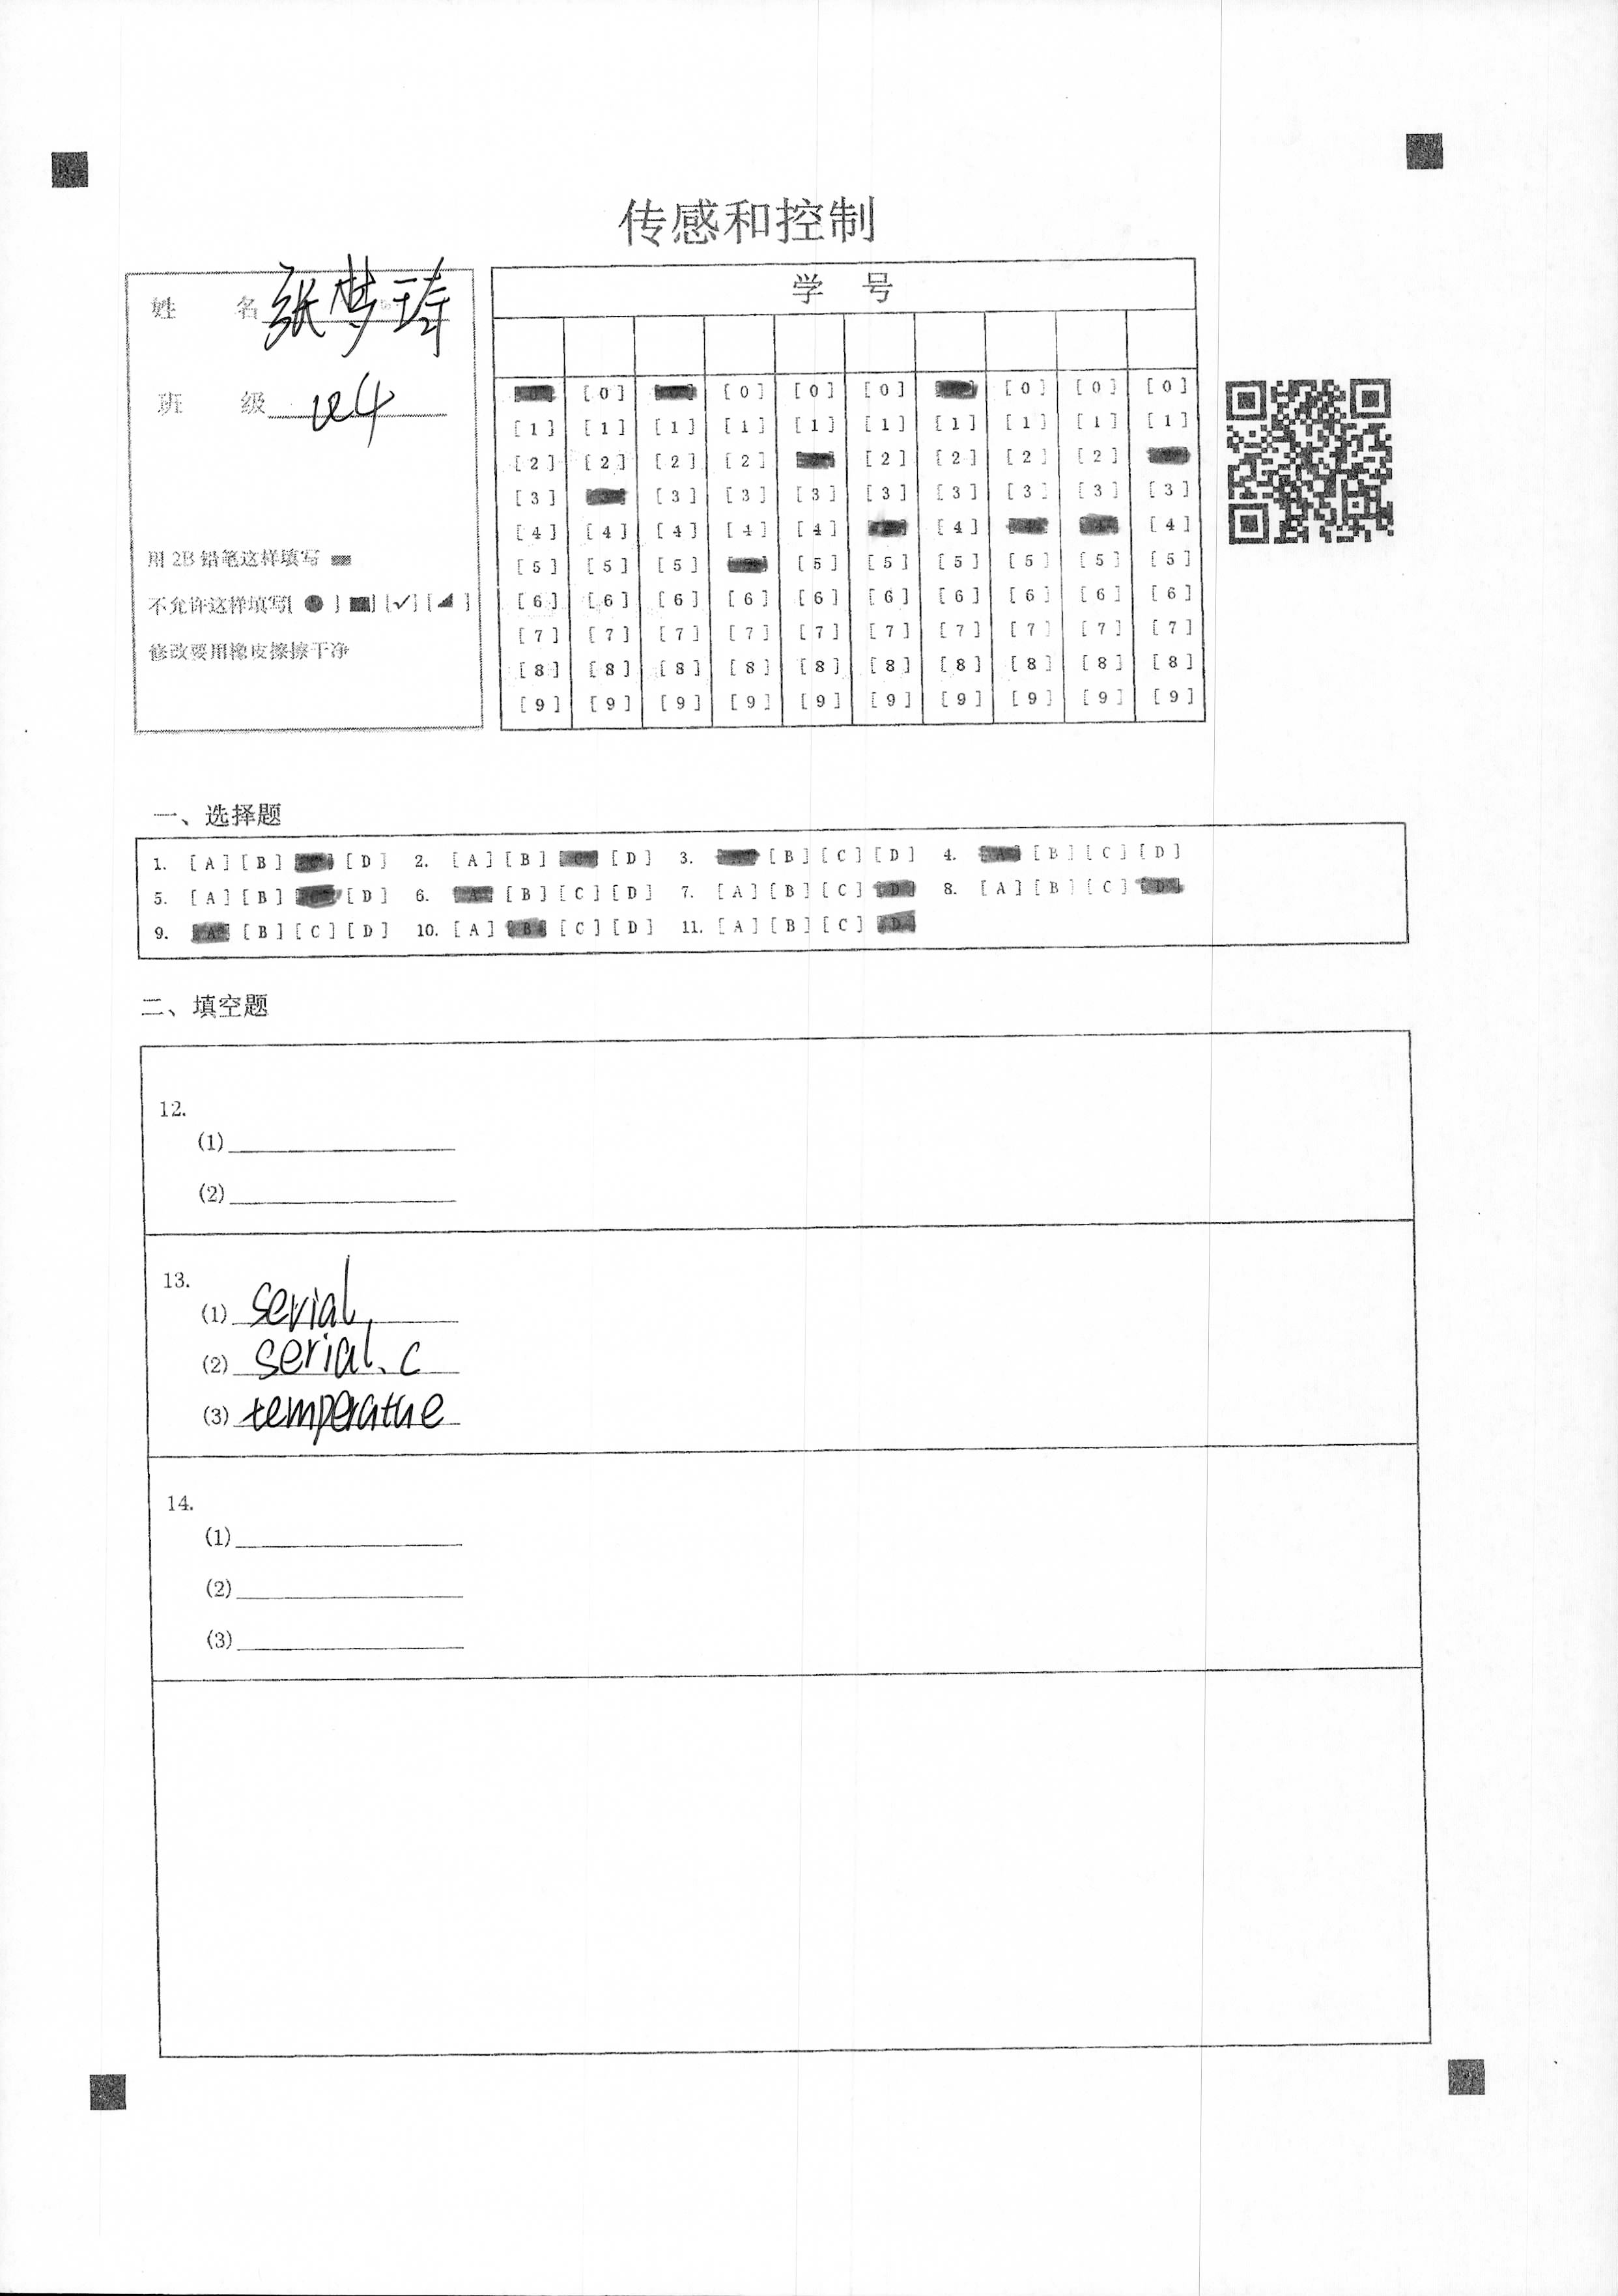 传感和控制
姓 名 张梦琦
班 级
用 2B 铅笔这样填写
不允许这样填写[ ● ] [■] [✓] [◢ ]
修改要用橡皮擦擦干净
学 号
[0] [0] [0] [0] [0] [0] [0]
[1] [1] [1] [1] [1] [1] [1] [1] [1] [1]
[2] [2] [2] [2] [2] [2] [2] [2]
[3] [3] [3] [3] [3] [3] [3] [3] [3]
[4] [4] [4] [4] [4] [4] [4]
[5] [5] [5] [5] [5] [5] [5] [5] [5]
[6] [6] [6] [6] [6] [6] [6] [6] [6] [6]
[7] [7] [7] [7] [7] [7] [7] [7] [7] [7]
[8] [8] [8] [8] [8] [8] [8] [8] [8] [8]
[9] [9] [9] [9] [9] [9] [9] [9] [9] [9]
一、选择题
1. [A] [B] [C] [D] 2. [A] [B] [C] [D] 3. [A] [B] [C] [D] 4. [A] [B] [C] [D]
5. [A] [B] [C] [D] 6. [A] [B] [C] [D] 7. [A] [B] [C] [D] 8. [A] [B] [C] [D]
9. [A] [B] [C] [D] 10. [A] [B] [C] [D] 11. [A] [B] [C] [D]
二、填空题
12.
(1)
(2)
13.
(1) serial
(2) serial.c
(3) temperatue
14.
(1)
(2)
(3)